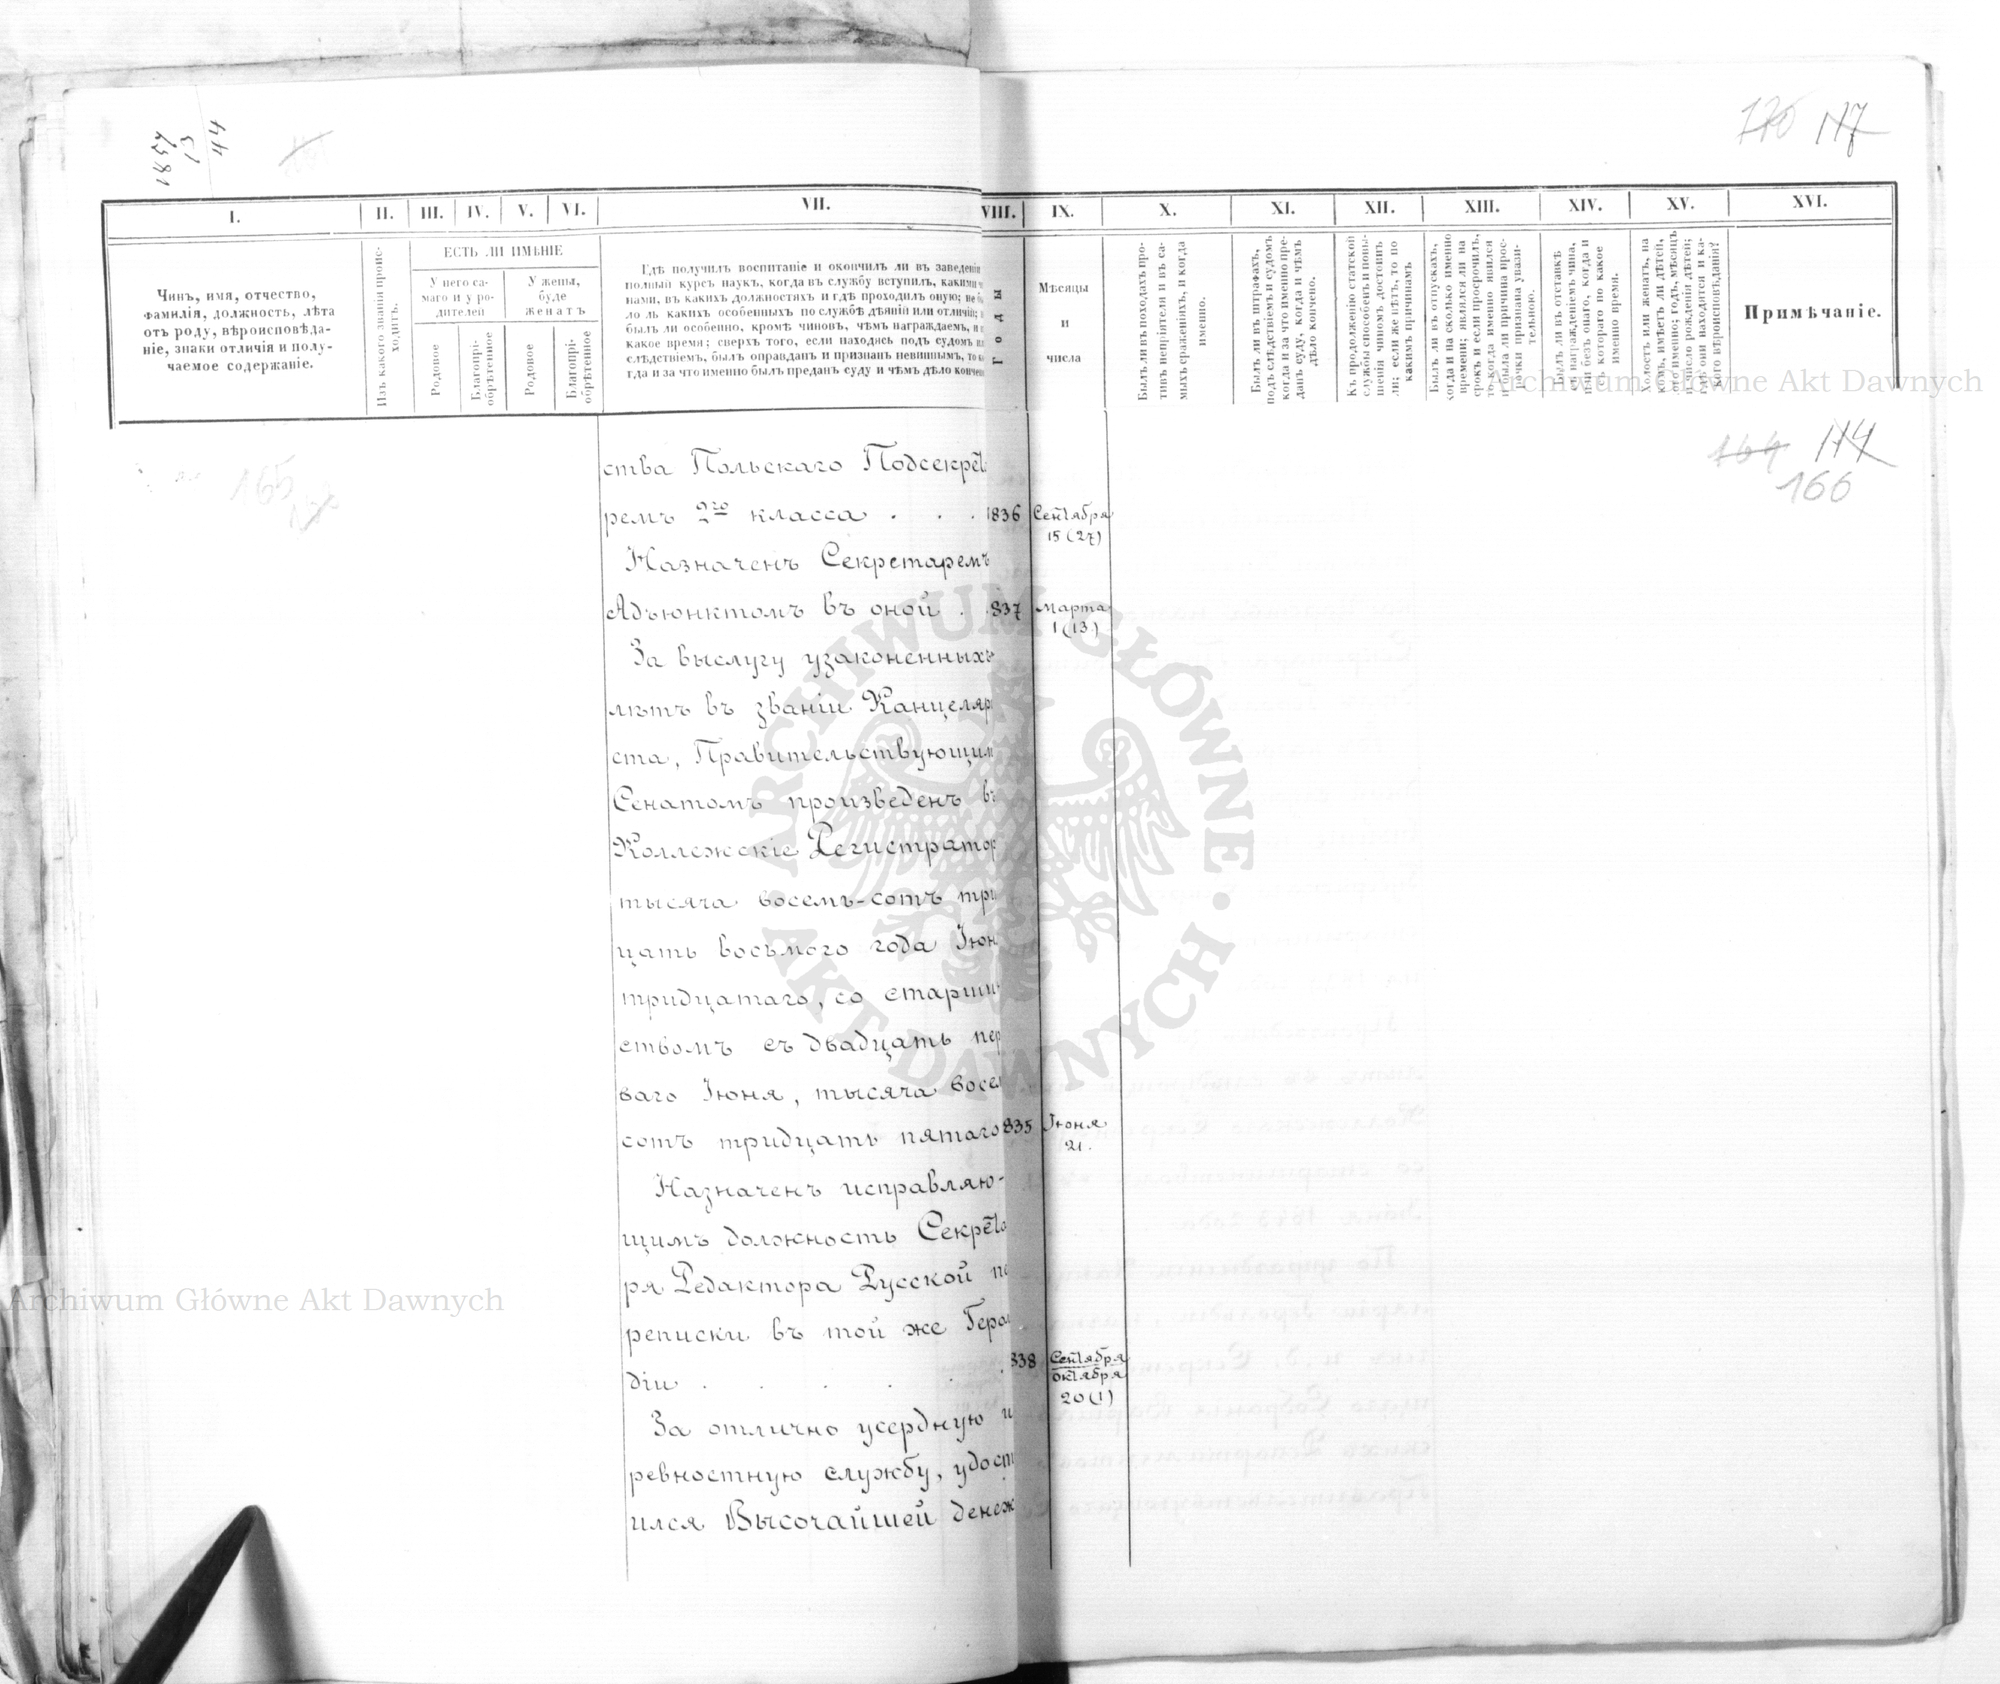 1857
13
44
170 117
I. II. III. IV. V. VI. VII. VIII. IX. X. XI. XII. XIII. XIV. XV. XVI.
Чинъ, имя, отчество,
фамилія, должность, лѣта
отъ роду, вѣроисповѣда-
ніе, знаки отличія и полу-
чаемое содержаніе.
Изъ какого званія проис-
ходитъ.
ЕСТЬ ЛИ ИМѢНІЕ
У него са-
маго и у ро-
дителей
У жены,
буде
женатъ
Родовое
Благопрі-
обрѣтенное
Родовое
Благопрі-
обрѣтенное
Гдѣ получилъ воспитаніе и окончилъ ли въ заведеніи
полный курсъ наукъ, когда въ службу вступилъ, какими
нами, въ какихъ должностяхъ и гдѣ проходилъ оную; не
ло ль какихъ особенныхъ по службѣ дѣяній или отличій;
былъ ли особенно, кромѣ чиновъ, чѣмъ награждаемъ, и
какое время; сверхъ того, если находясь подъ судомъ
слѣдствіемъ, былъ оправданъ и признанъ невиннымъ, то
гда и за что именно былъ преданъ суду и чѣмъ дѣло кончен
Годы
Мѣсяцы
и
числа
Былъ ли въ походахъ про-
тивъ непріятеля и въ са-
мыхъ сраженіяхъ, и когда
именно.
Былъ ли въ штрафахъ,
подъ слѣдствіемъ и судомъ
когда и за что именно пре-
данъ суду, когда и чѣмъ
дѣло кончено.
Къ продолженію статской
службы способенъ и повы-
шенія чиномъ достоинъ
ли; если же нѣтъ, то по
какимъ причинамъ
Былъ ли въ отпускахъ,
когда и на сколько именно
времени; являлся ли на
срокъ и если просрочилъ,
то когда именно явился
и была ли причина прос-
рочки признана уважи-
тельною.
Былъ ли въ отставкѣ
съ награжденіемъ чина,
или безъ онаго, когда и
съ котораго по какое
именно время.
Холостъ или женатъ, на
комъ, имѣетъ ли дѣтей,
кого именно; годъ, мѣсяцъ
и число рожденія дѣтей;
гдѣ они находятся и ка-
кого вѣроисповѣданія?
Примѣчаніе.
Archiwum Główne Akt Dawnych
165
164 114
166
ства Польскаго Подсекрет
ремъ 2го класса . . . 1836 Сентября
15 (27)
Назначенъ Секретаремъ
Адъюнктомъ въ оной . . 837 Марта
1 (13)
За выслугу узаконенныхъ
лѣтъ въ званіи Канцеляр
ста, Правительствующим
Сенатомъ произведенъ въ
Коллежскіе Регистратор
тысяча восемь-сотъ три
цать восьмого года Іюн
тридцатаго, со старшин
ствомъ съ двадцать пер
ваго Іюня, тысяча восем
сотъ тридцать пятаго 835 Іюня
21.
Назначенъ исправляю-
щимъ должность Секрета
ря Редактора Русской пе
реписки въ той же Герол
діи . . . . . . 838 Сентября
Октября
20 (1)
За отлично усердную и
ревностную службу, удост
ился Высочайшей денеж
ARCHIWUM GŁÓWNE · AKT DAWNYCH ·
Archiwum Główne Akt Dawnych